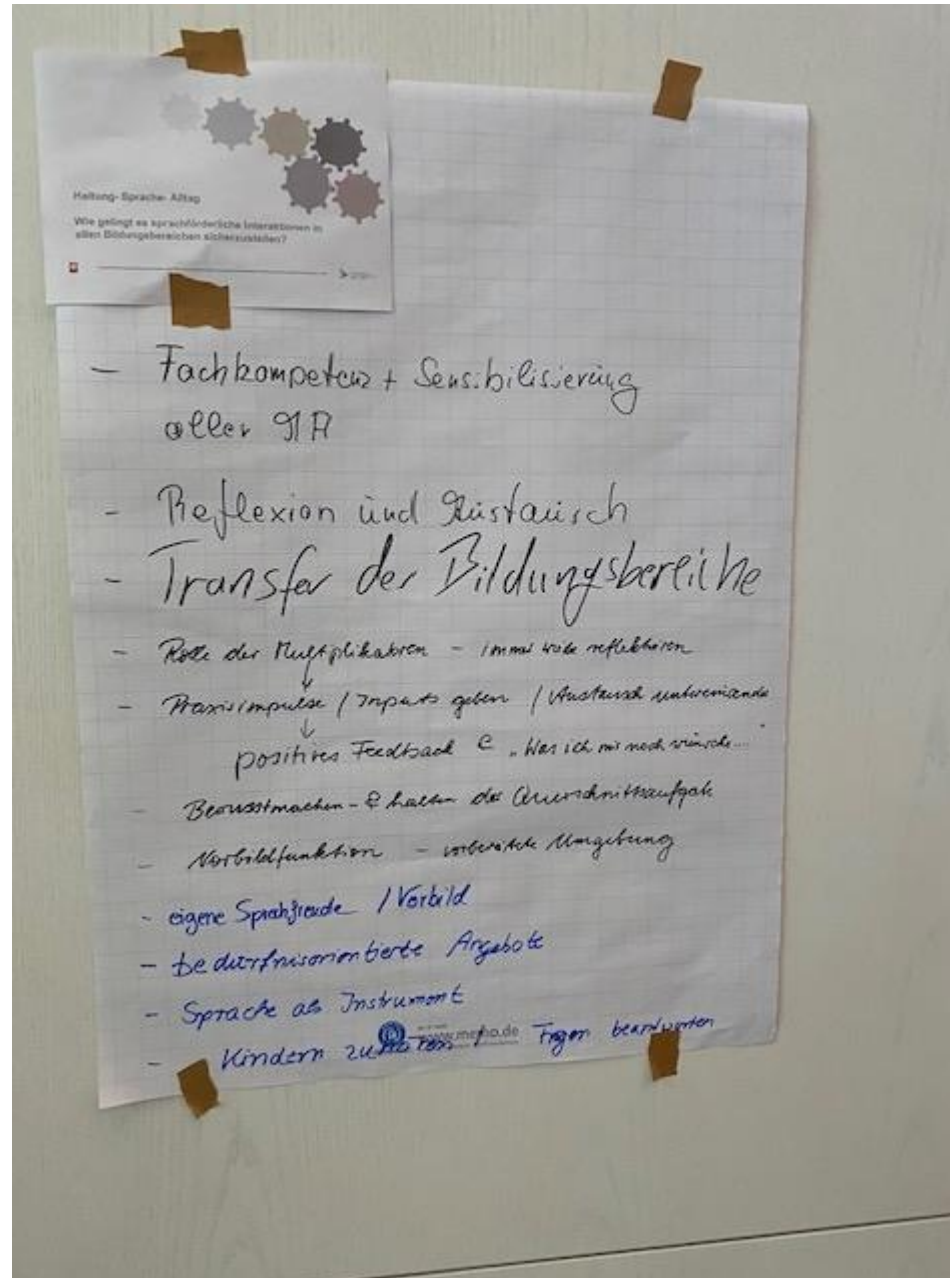 Haltung- Sprache- Alltag
Wie gelingt es sprachförderliche Interaktionen in
allen Bildungsbereichen sicherzustellen?
- Fachkompetenz + Sensibilisierung
aller MA
- Reflexion und Austausch
- Transfer der Bildungsbereiche
- Rolle der Multiplikatoren - immer wieder reflektieren
- Praxisimpulse / Inputs geben / Austausch untereinander
positives Feedback „Was ich mir noch wünsche..."
- Bewusstmachen - & halten der Querschnittsaufgabe
- Vorbildfunktion - vorbereitete Umgebung
- eigene Sprachfreude / Vorbild
- bedürfnisorientierte Angebote
- Sprache als Instrument
www.memo.de
- Kindern zuhören / Fragen beantworten